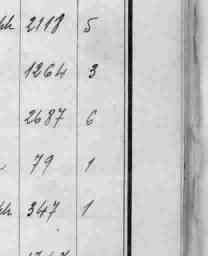 2118 5
1264 3
2687 6
79 1
347 1